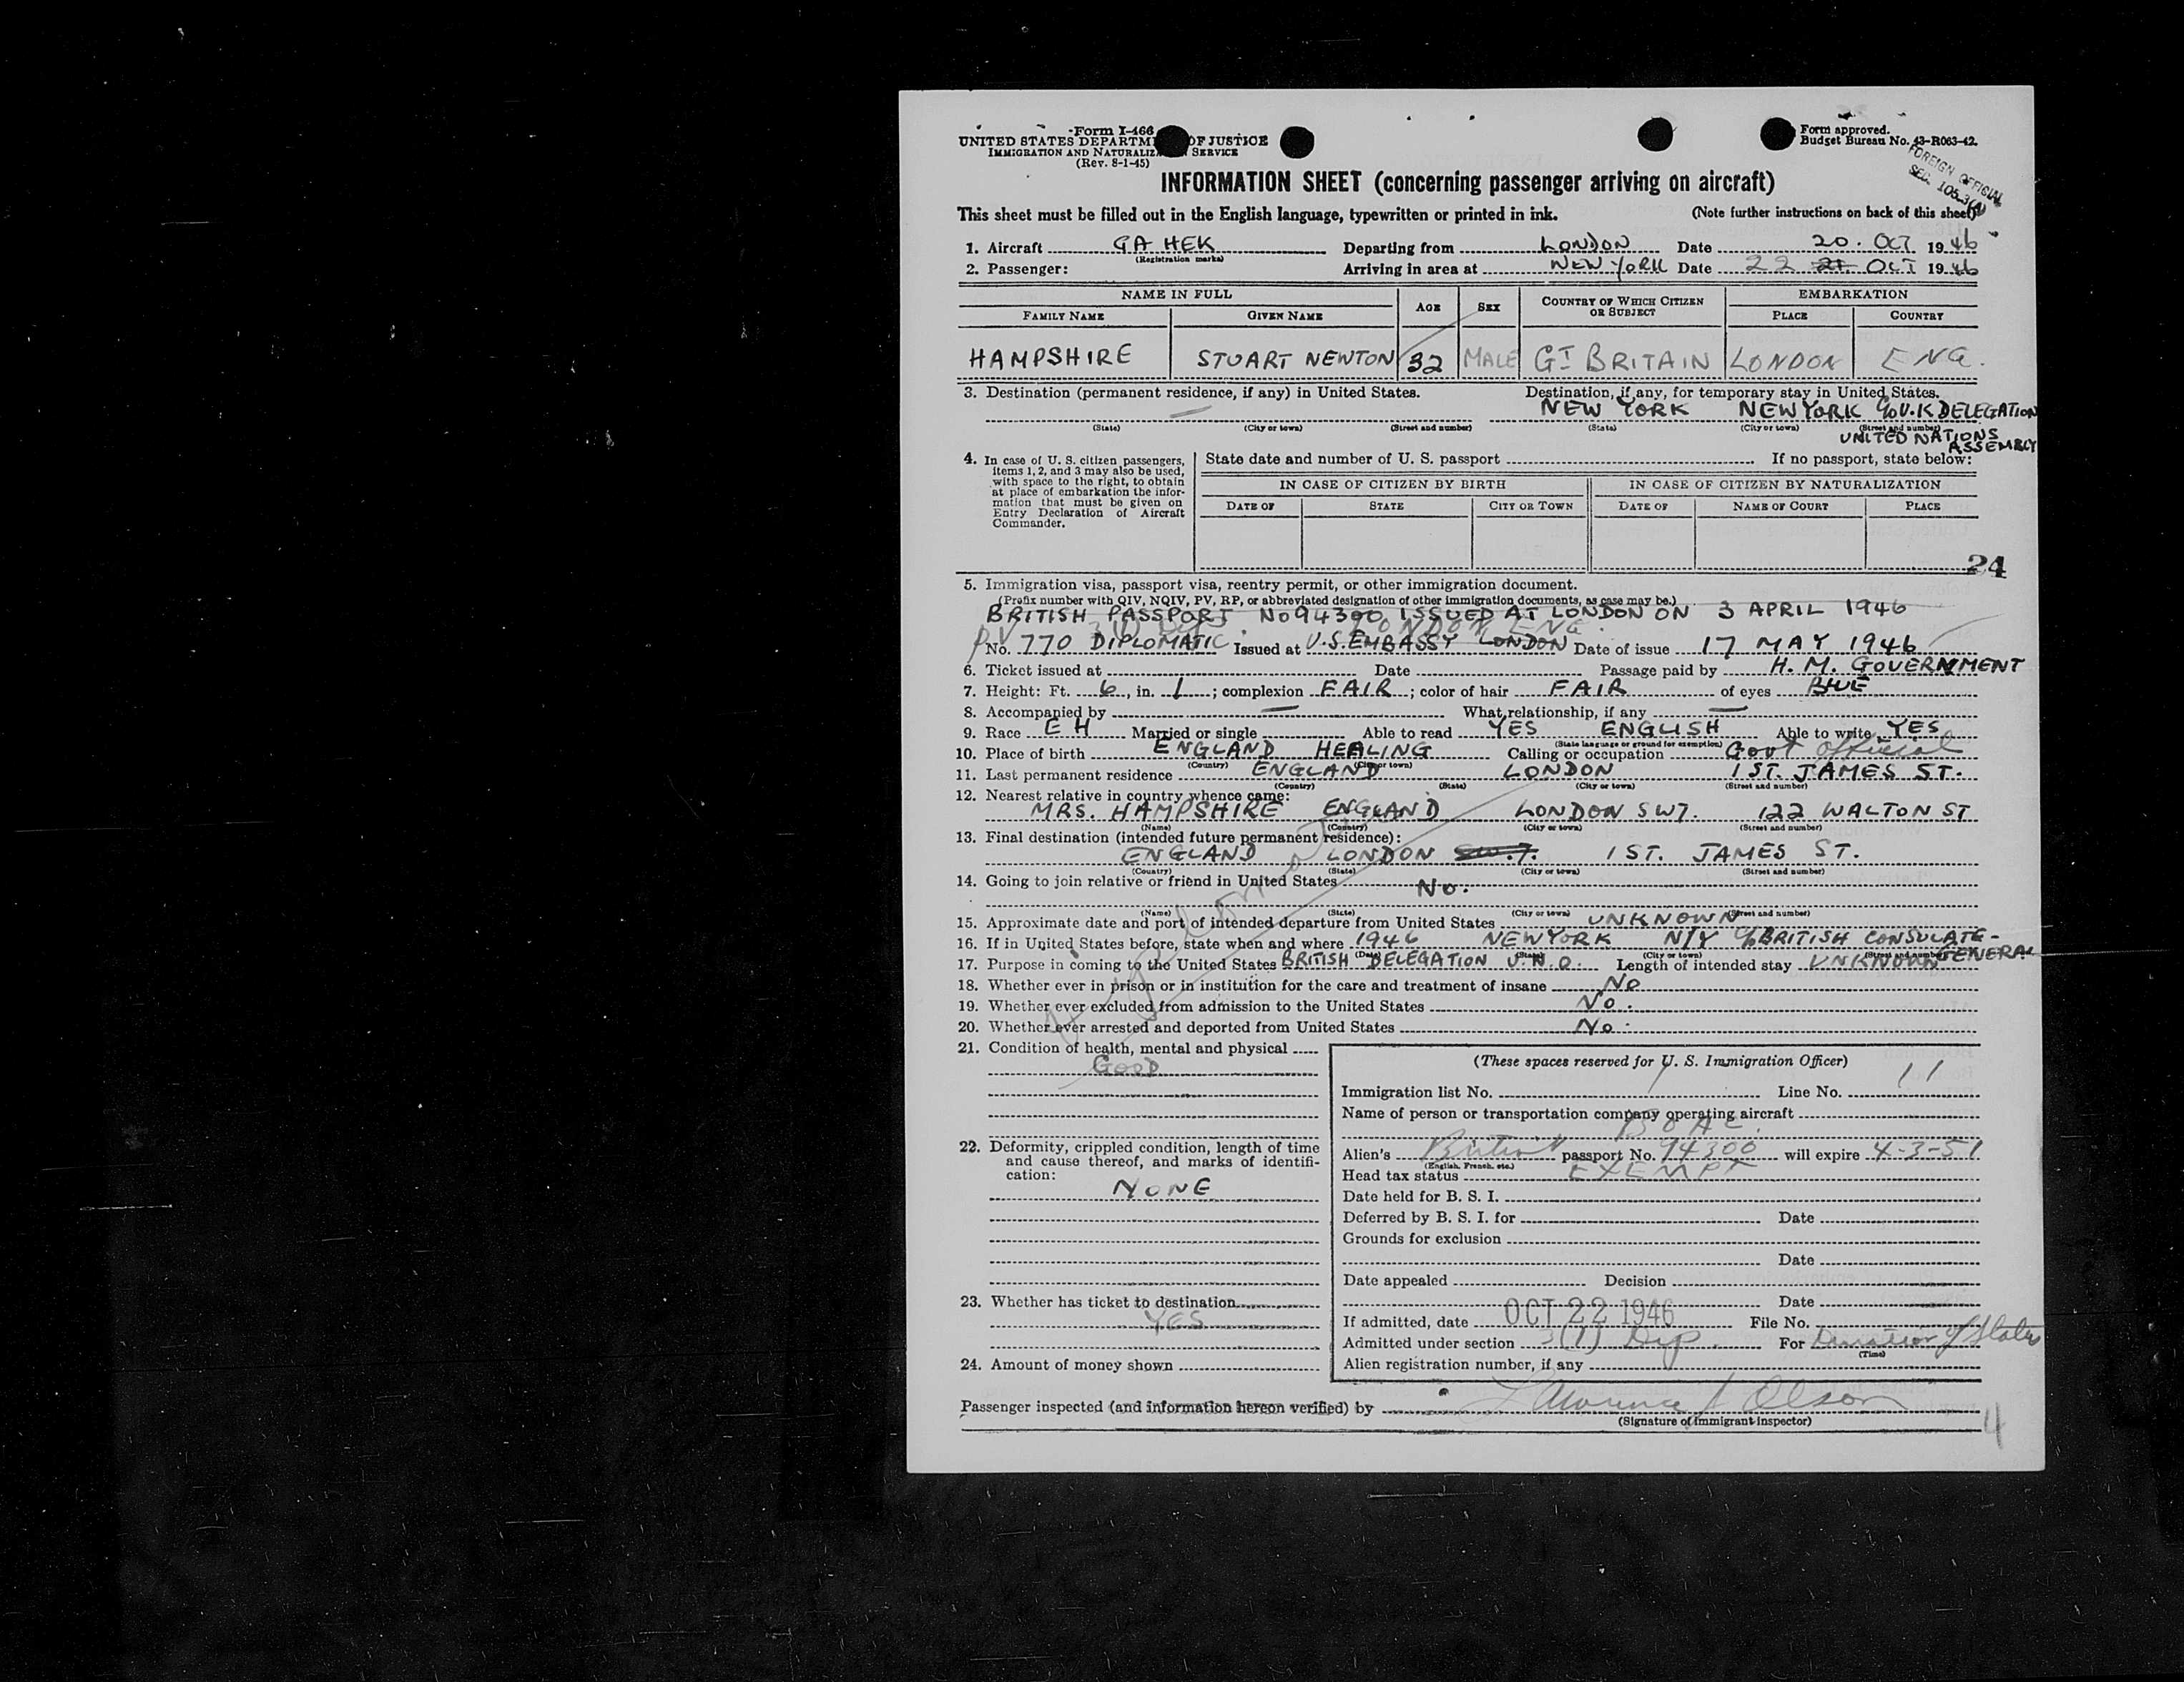 Form I-466
UNITED STATES DEPARTM OF JUSTICE
IMMIGRATION AND NATURALIZ SERVICE
(Rev. 8-1-45)
Form approved.
Budget Bureau No. 43-R063-42.
FOREIGN OFFICIAL
SEC. 105.3(A)
INFORMATION SHEET (concerning passenger arriving on aircraft)
This sheet must be filled out in the English language, typewritten or printed in ink. (Note further instructions on back of this sheet)
1. Aircraft GA HEK Departing from LONDON Date 20. OCT 1946
(Registration marks)
2. Passenger: Arriving in area at NEW YORK Date 22 21. OCT 1946
NAME IN FULL AGE SEX COUNTRY OF WHICH CITIZEN OR SUBJECT EMBARKATION
FAMILY NAME GIVEN NAME PLACE COUNTRY
HAMPSHIRE STUART NEWTON 32 MALE GT BRITAIN LONDON ENG.
3. Destination (permanent residence, if any) in United States. Destination, if any, for temporary stay in United States.
— NEW YORK NEW YORK C/o U.K DELEGATION
(State) (City or town) (Street and number) (State) (City or town) (Street and number)
UNITED NATIONS
ASSEMBLY
4. In case of U. S. citizen passengers, items 1, 2, and 3 may also be used, with space to the right, to obtain at place of embarkation the information that must be given on Entry Declaration of Aircraft Commander.
State date and number of U. S. passport If no passport, state below:
IN CASE OF CITIZEN BY BIRTH IN CASE OF CITIZEN BY NATURALIZATION
DATE OF STATE CITY OR TOWN DATE OF NAME OF COURT PLACE
24
5. Immigration visa, passport visa, reentry permit, or other immigration document.
(Prefix number with QIV, NQIV, PV, RP, or abbreviated designation of other immigration documents, as case may be.)
BRITISH PASSPORT No 94300 ISSUED AT LONDON ON 3 APRIL 1946
PV 3(1) Dip. LONDON ENG.
No. 770 DIPLOMATIC Issued at U.S. EMBASSY LONDON Date of issue 17 MAY 1946
6. Ticket issued at Date Passage paid by H. M. GOVERNMENT
7. Height: Ft. 6, in. 1; complexion FAIR; color of hair FAIR of eyes BLUE
8. Accompanied by — What relationship, if any —
9. Race EH Married or single Able to read YES ENGLISH Able to write YES
(State language or ground for exemption)
10. Place of birth ENGLAND HEALING Calling or occupation Govt official
(Country) (City or town)
11. Last permanent residence ENGLAND LONDON 1 ST. JAMES ST.
(Country) (State) (City or town) (Street and number)
12. Nearest relative in country whence came:
MRS. HAMPSHIRE ENGLAND LONDON SW7. 122 WALTON ST
(Name) (Country) (City or town) (Street and number)
13. Final destination (intended future permanent residence):
ENGLAND LONDON SW.7. 1 ST. JAMES ST.
(Country) (State) (City or town) (Street and number)
14. Going to join relative or friend in United States No.
(Name) (State) (City or town) (Street and number)
15. Approximate date and port of intended departure from United States UNKNOWN
16. If in United States before, state when and where 1946 NEW YORK N/Y C/o BRITISH CONSULATE-GENERAL
(Date) (State) (City or town) (Street and number)
17. Purpose in coming to the United States BRITISH DELEGATION U.N.O. Length of intended stay UNKNOWN
18. Whether ever in prison or in institution for the care and treatment of insane NO
19. Whether ever excluded from admission to the United States No.
20. Whether ever arrested and deported from United States No.
21. Condition of health, mental and physical
GOOD
22. Deformity, crippled condition, length of time and cause thereof, and marks of identification:
NONE
23. Whether has ticket to destination
YES
24. Amount of money shown
(These spaces reserved for U. S. Immigration Officer)
Immigration list No. 1 Line No. 11
Name of person or transportation company operating aircraft
BOAC.
Alien's British passport No. 94300 will expire 4-3-51
(English, French, etc.)
Head tax status EXEMPT
Date held for B. S. I.
Deferred by B. S. I. for Date
Grounds for exclusion
Date
Date appealed Decision
Date
If admitted, date OCT 22 1946 File No.
Admitted under section 3(1) Dip. For Duration of Status
(Time)
Alien registration number, if any
Passenger inspected (and information hereon verified) by Lawrence Olson
(Signature of immigrant inspector)
4